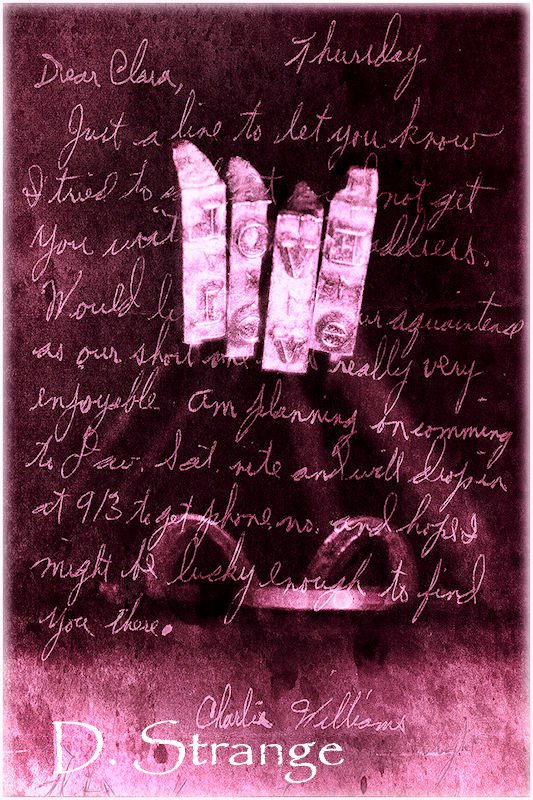 Thursday
Dear Clara,
Just a line to let you know
I tried to not get
You address.
Would aquaintence
as our short really very
enjoyable. Am planning on comming
to Law. Sat. nite and will drop in
at 913 to get phone no. and hope I
might be lucky enough to find
you there.
Charlie Williams
D. Strange